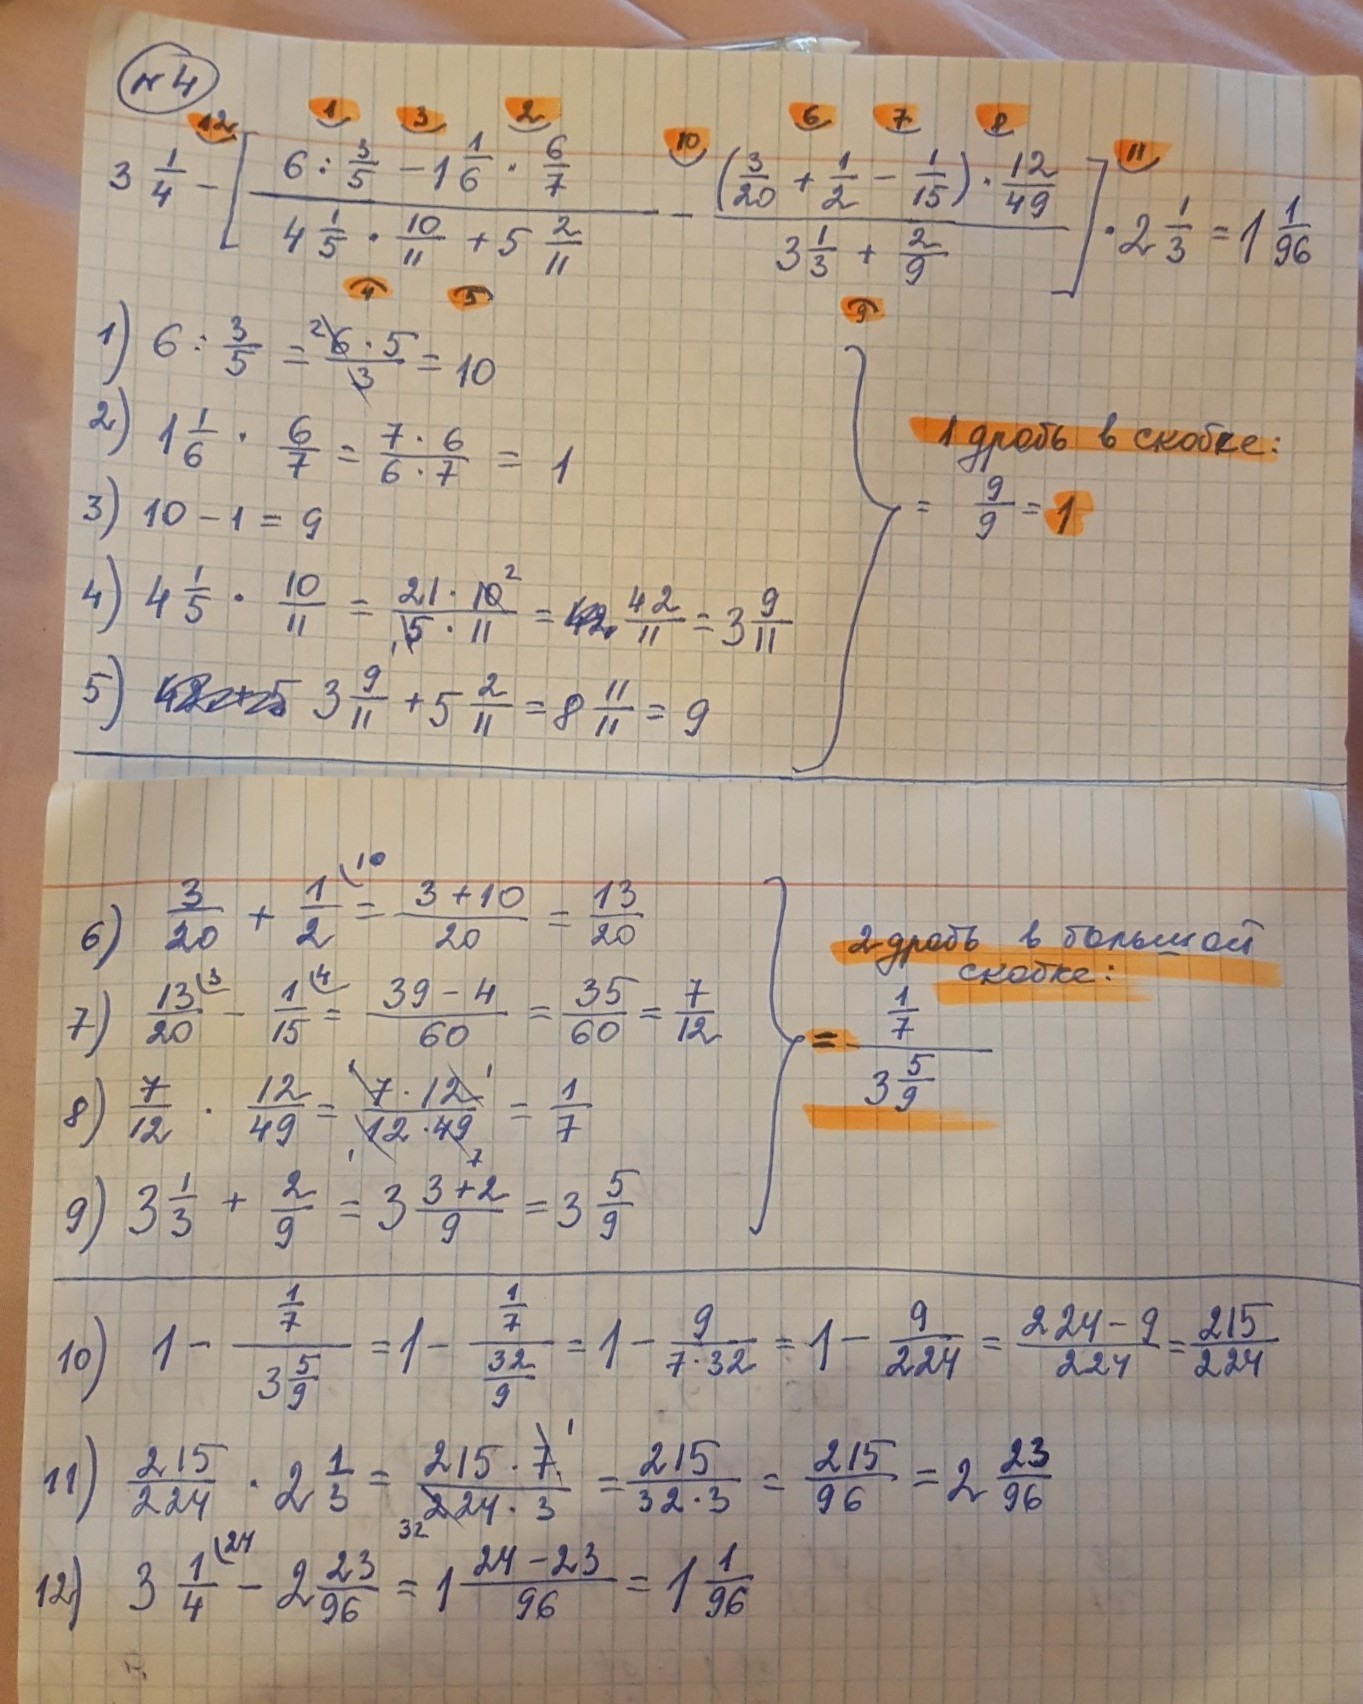 №4
12 1 3 2 10 6 7 8 11
3 1/4 - [ (6 : 3/5 - 1 1/6 · 6/7) / (4 1/5 · 10/11 + 5 2/11) - ((3/20 + 1/2 - 1/15) · 12/49) / (3 1/3 + 2/9) ] · 2 1/3 = 1 1/96
4 5 9
1) 6 : 3/5 = 6 · 5 / 3 = 10
2) 1 1/6 · 6/7 = 7 · 6 / 6 · 7 = 1
3) 10 - 1 = 9
4) 4 1/5 · 10/11 = 21 · 10 / 5 · 11 = 42/11 = 3 9/11
5) 3 9/11 + 5 2/11 = 8 11/11 = 9
1 дробь в скобке:
= 9/9 = 1
6) 3/20 + 1/2 = 3 + 10 / 20 = 13/20
7) 13/20 - 1/15 = 39 - 4 / 60 = 35/60 = 7/12
8) 7/12 · 12/49 = 7 · 12 / 12 · 49 = 1/7
9) 3 1/3 + 2/9 = 3 3+2/9 = 3 5/9
2 дробь в большой
скобке:
= 1/7 / 3 5/9
10) 1 - 1/7 / 3 5/9 = 1 - 1/7 / 32/9 = 1 - 9 / 7 · 32 = 1 - 9/224 = 224 - 9 / 224 = 215/224
11) 215/224 · 2 1/3 = 215 · 7 / 224 · 3 = 215 / 32 · 3 = 215/96 = 2 23/96
12) 3 1/4 - 2 23/96 = 1 24 - 23 / 96 = 1 1/96